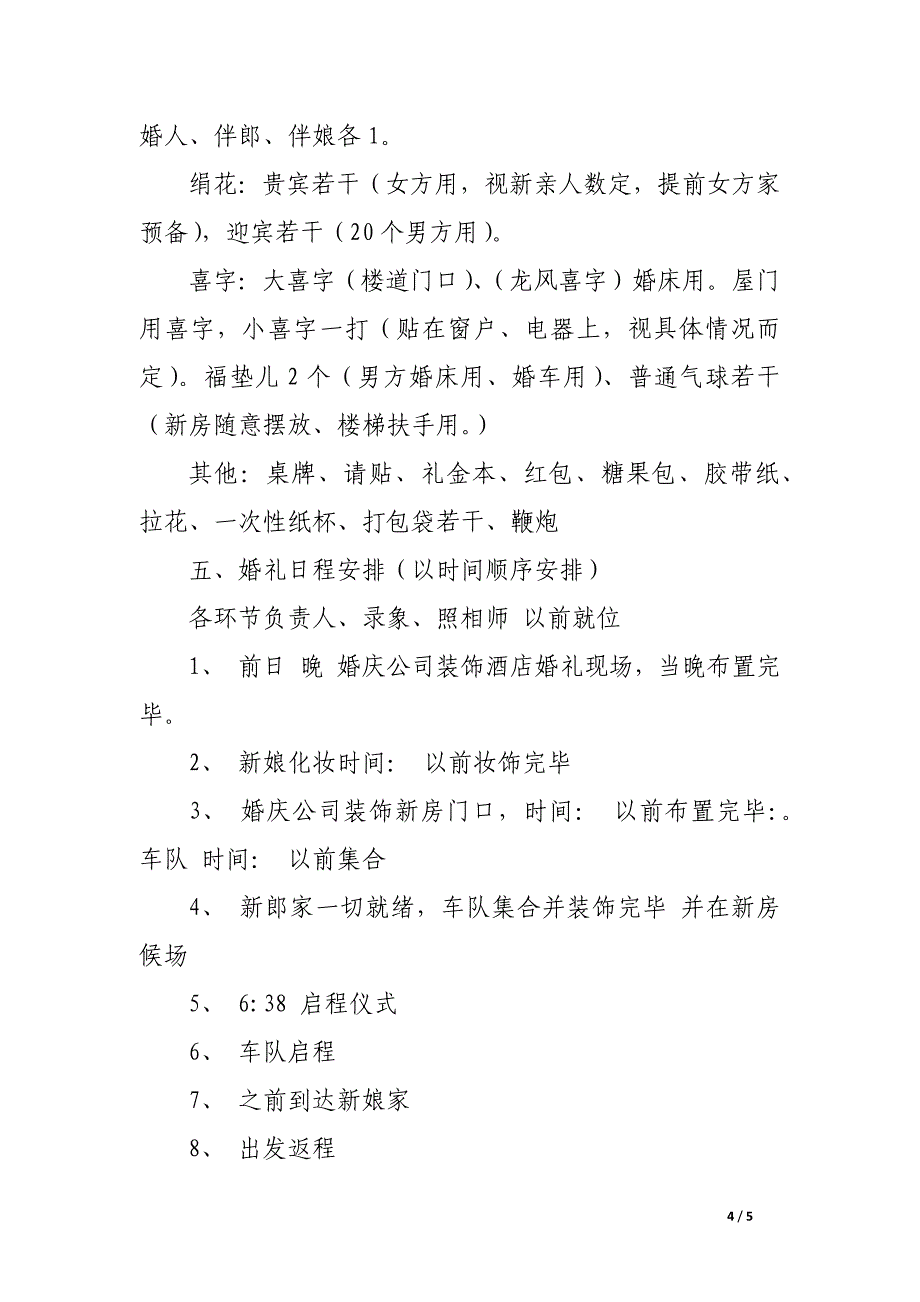 婚人、伴郎、伴娘各1。
绢花：贵宾若干（女方用，视新亲人数定，提前女方家
预备），迎宾若干（20个男方用）。
喜字：大喜字（楼道门口）、（龙风喜字）婚床用。屋门
用喜字，小喜字一打（贴在窗户、电器上，视具体情况而
定）。福垫儿2个（男方婚床用、婚车用）、普通气球若干
（新房随意摆放、楼梯扶手用。）
其他：桌牌、请贴、礼金本、红包、糖果包、胶带纸、
拉花、一次性纸杯、打包袋若干、鞭炮
五、婚礼日程安排（以时间顺序安排）
各环节负责人、录象、照相师 以前就位
1、 前日 晚 婚庆公司装饰酒店婚礼现场，当晚布置完
毕。
2、 新娘化妆时间： 以前妆饰完毕
3、 婚庆公司装饰新房门口，时间： 以前布置完毕：。
车队 时间： 以前集合
4、 新郎家一切就绪，车队集合并装饰完毕 并在新房
候场
5、 6：38 启程仪式
6、 车队启程
7、 之前到达新娘家
8、 出发返程
4 / 5